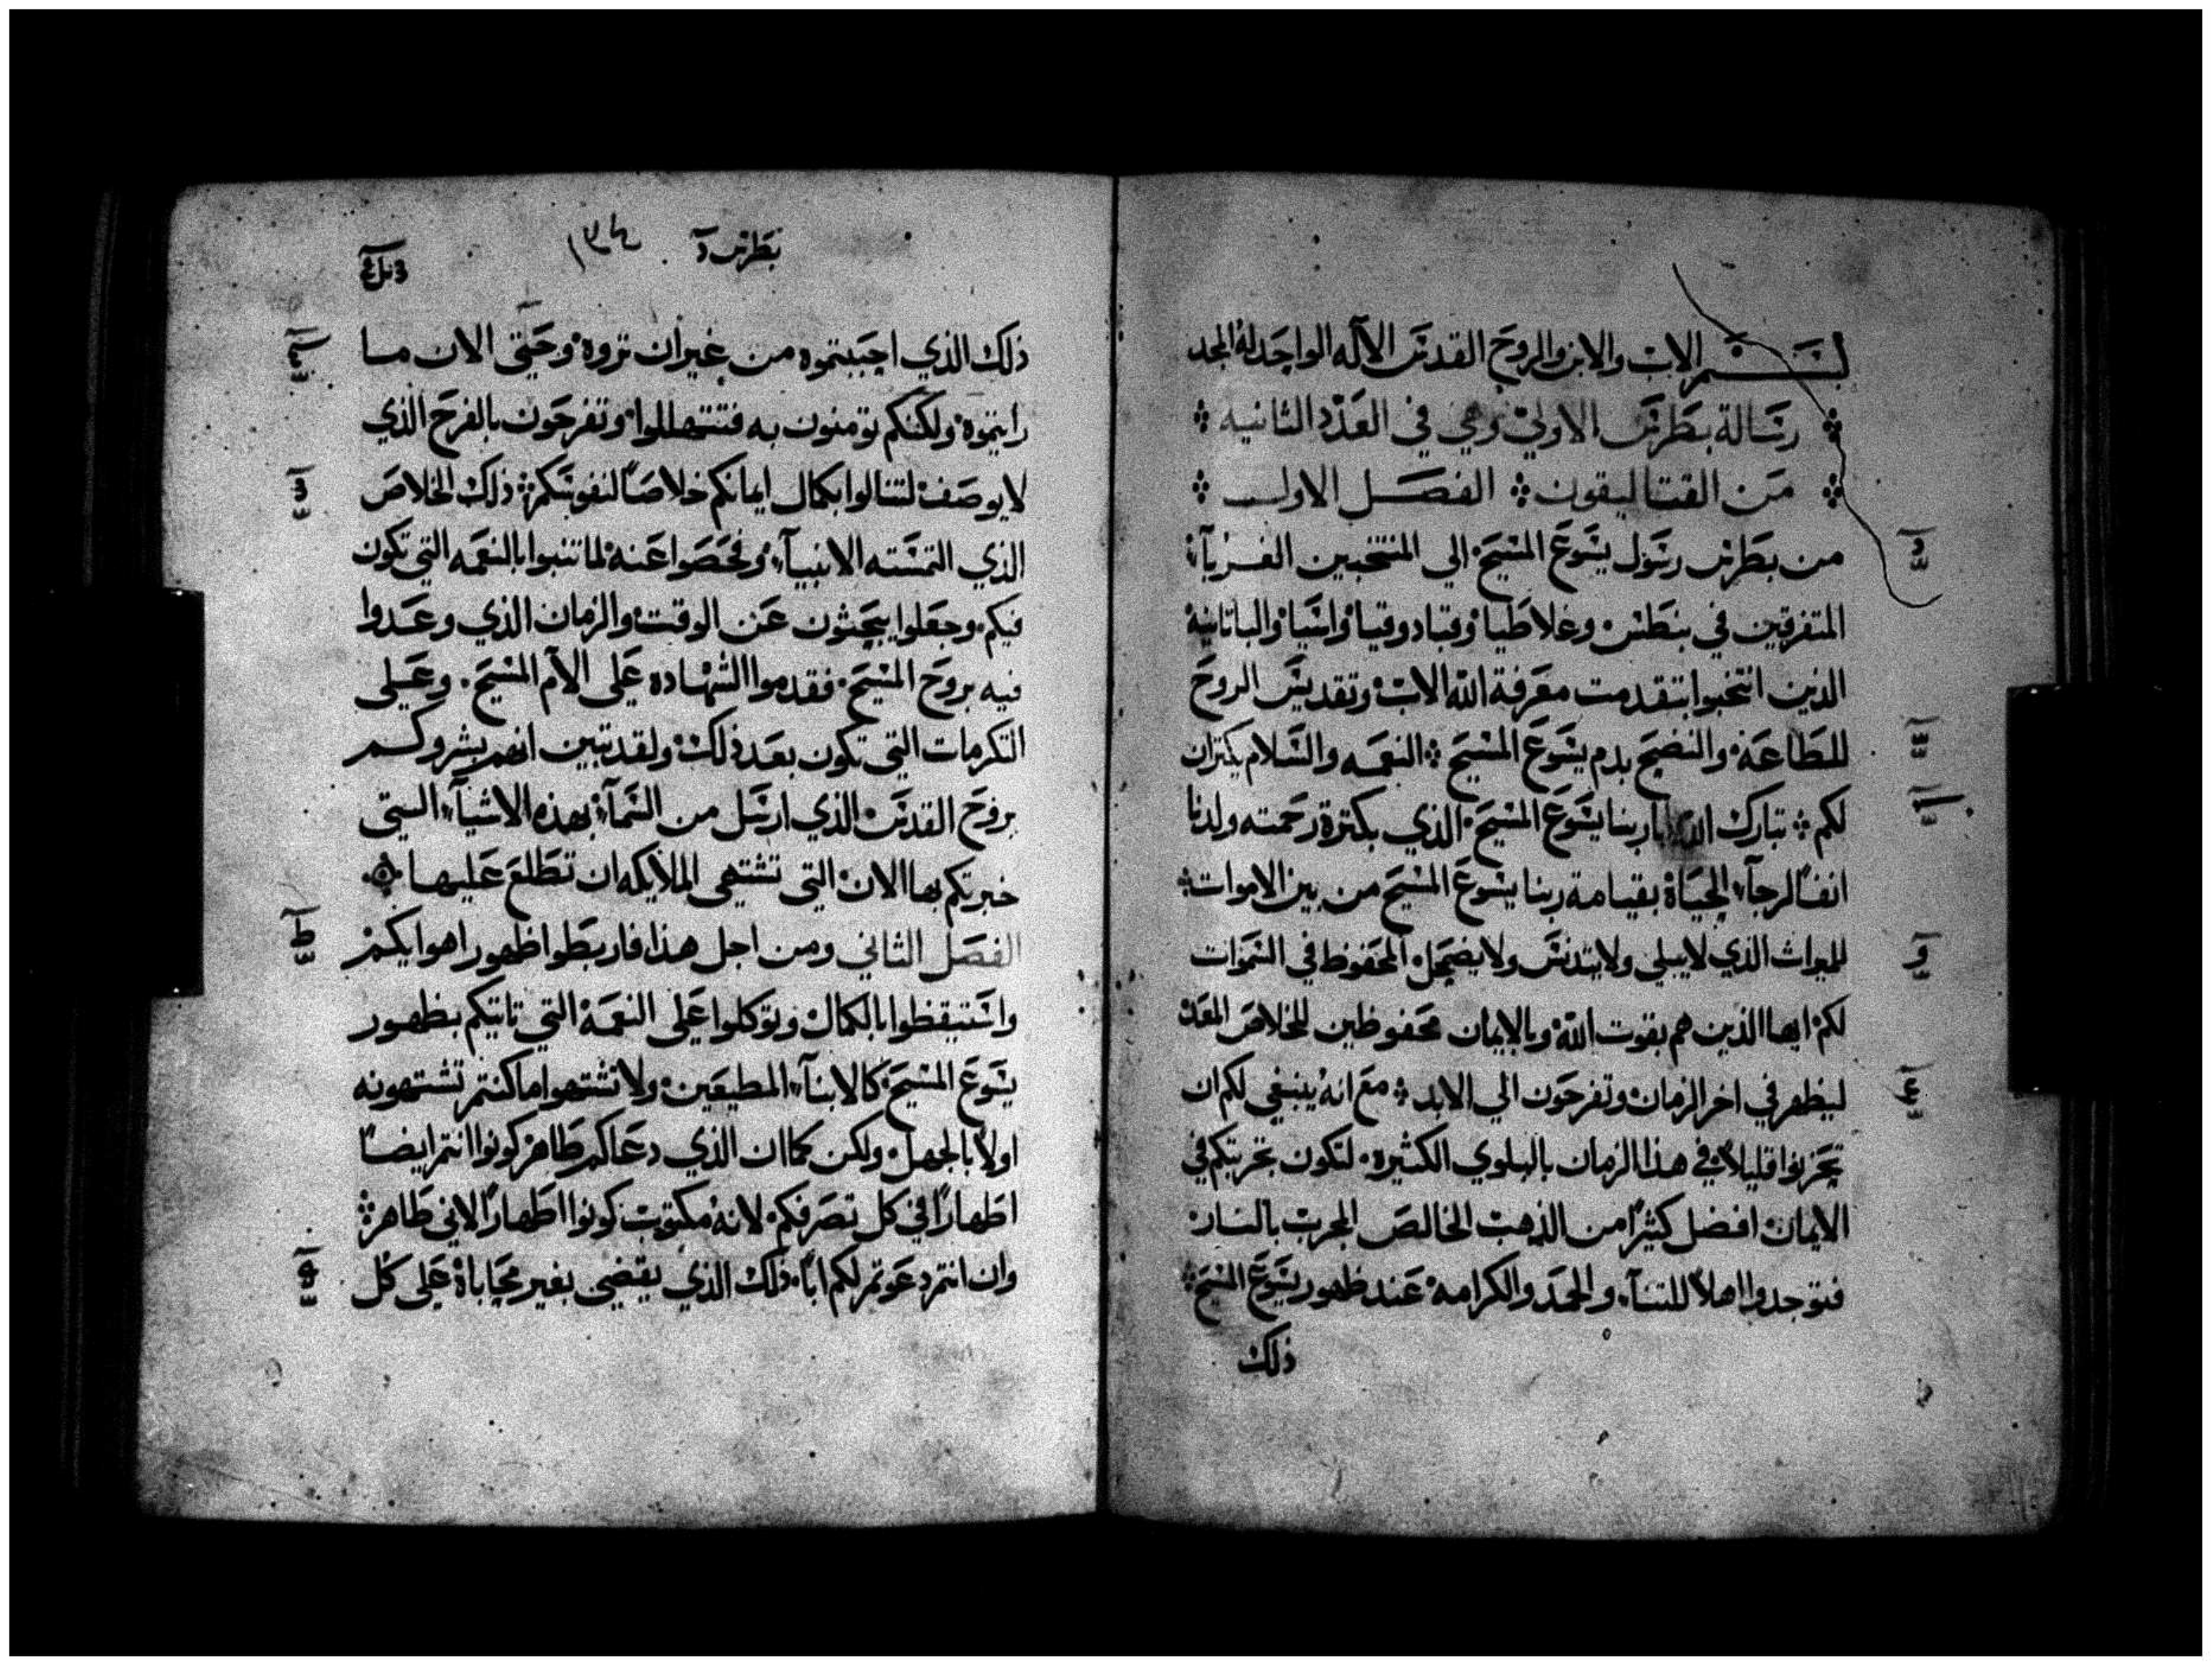 بسم الاب والابن والروح القدس الاله الواحد له المجد
رسالة بطرس الاولي وهي في العدد الثانيه
من القتاليقون الفصل الاول
من بطرس رسول يسوع المسيح الي المنتخبين الغربآء
المتفرقين في بنطس وغلاطيا وقبادوقيا واسيا والباتانيه
الذين انتخبوا بتقدمت معرفة الله الاب وتقديس الروح
للطاعة والنضيح بدم يسوع المسيح النعمه والسلام يكثران
لكم تبارك الله ابا ربنا يسوع المسيح الذي بكثرة رحمته ولدنا
انفا لرجآء الحياة بقيامة ربنا يسوع المسيح من بين الاموات
للميراث الذي لا يبلي ولا يتدنس ولا يضمحل المحفوظ في السموات
لكم ايها الذين هم بقوت الله وبالايمان محفوظين للخلاص المعد
ليظهر في اخر الزمان وتفرحون الي الابد مع انه ينبغي لكم ان
تحزنوا قليلا في هذا الزمان بالبلوي الكثيره لتكون تجربتكم في
الايمان افضل كثيرا من الذهب الخالص المجرب بالنار
فتوجدوا اهلا للثنآء والحمد والكرامه عند ظهور يسوع المسيح
ذلك
بطرس ١٣٤
ذلك الذي احببتموه من غير ان تروه وحتى الان ما
رايتموه ولكنكم تومنون به فتتهللوا وتفرحون بالفرح الذي
لا يوصف لتنالوا بكمال ايمانكم خلاصا لنفوسكم ذلك الخلاص
الذي التمسته الانبيآء وفحصوا عنه لما تنبوا بالنعمه التي تكون
فيكم وجعلوا يبحثون عن الوقت والزمان الذي وعدوا
فيه بروح المسيح فقدموا الشهاده على الام المسيح وعلى
التكرمات التي تكون بعد ذلك ولقد تبين انهم بشروكم
بروح القدس الذي ارسل من السمآء بهذه الاشيآء التي
خبرتكم بها الان التي تشتهي الملايكه ان تطلع عليها
الفصل الثاني ومن اجل هذا فاربطوا ظهور اهوايكم
واستيقظوا بالكمال وتوكلوا على النعمة التي تاتيكم بظهور
يسوع المسيح كالابنآء المطيعين ولا تشتهوا ما كنتم تشتهونه
اولا بالجهل ولكن كما ان الذي دعاكم طاهر كونوا انتم ايضا
اطهارا في كل تصرفكم لانه مكتوب كونوا اطهارا لاني طاهر
وان انتم دعوتم لكم ابا ذلك الذي يقضي بغير محاباة على كل